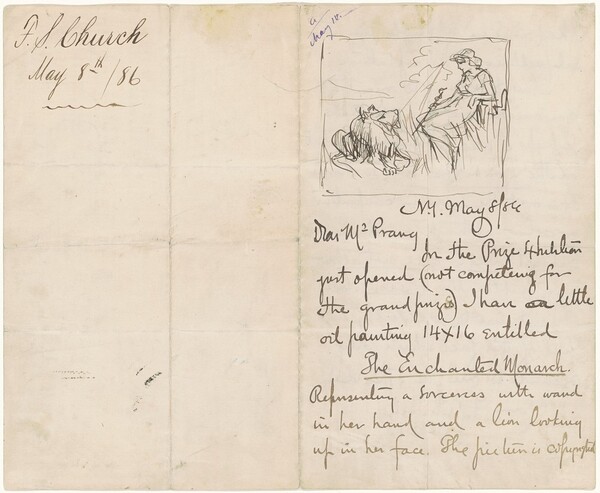 F. S. Church
May 8th /86
a
May 12.
N.Y. May 8/86
Dear Mr Prang
In the Prize Exhibition
just opened (not competeing for
the grand prize) I have a little
oil painting 14x16 entitled
The Enchanted Monarch.
Representing a sorceress with wand
in her hand and a lion looking
up in her face. The picture is copyrighted